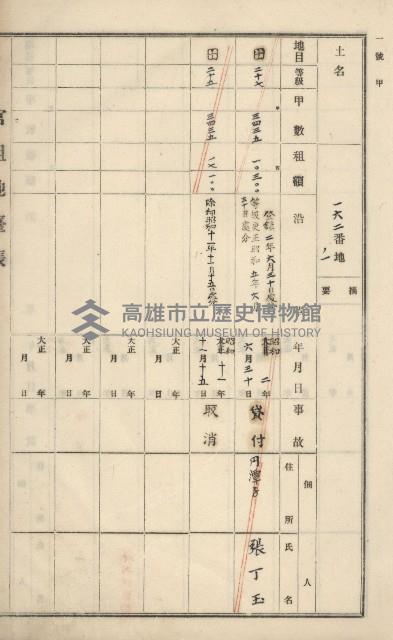 一號甲
土名
一六二番地ノ一
摘要
地目
等級
甲數
租額
沿
年月日
事故
佃人
住所
氏名
田
二七
三四三五
一〇三〇〇
登錄二年六月三十日
等級更正昭和五年六月
三十日處分
昭和
二年
六月三十日
貸付
円潭子
張丁玉
田
二五
三四三五
一七一〇〇
除却昭和十一年十一月十五日處分
昭和
大正十一年
十一月十五日
取消
大正 年
月 日
大正 年
月 日
大正 年
月 日
大正 年
月 日
官租地臺帳
高雄市立歷史博物館
KAOHSIUNG MUSEUM OF HISTORY